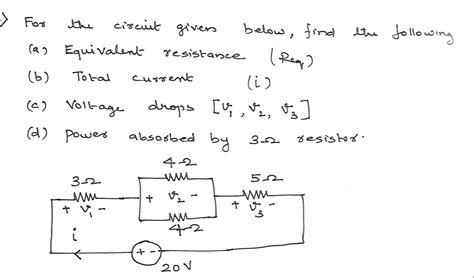 For the circuit given below, find the following
(a) Equivalent resistance (Req)
(b) Total current (i)
(c) Voltage drops [v₁, v₂, v₃]
(d) Power absorbed by 3Ω resistor.
4Ω
3Ω 5Ω
+ v₁ - + v₂ - + v₃ -
4Ω
i
+ -
20V